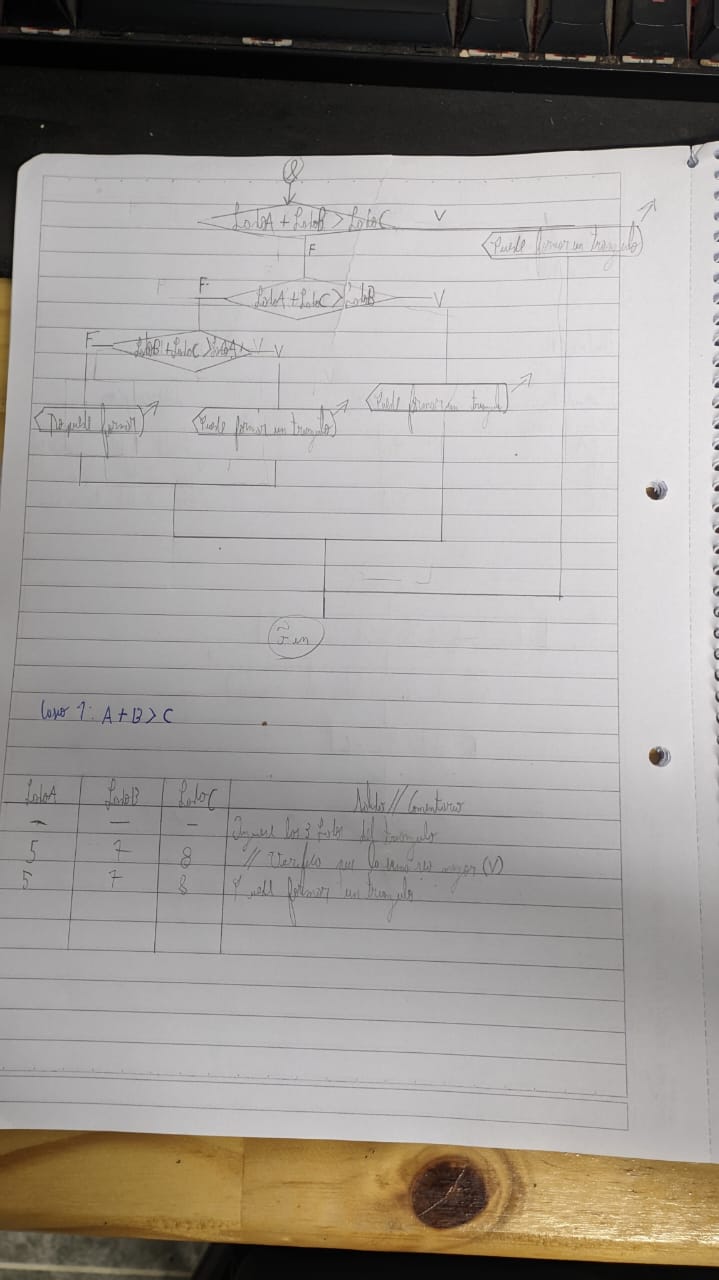 LadoA + LadoB > LadoC V
Puede formar un triangulo
F
F LadoA + LadoC > LadoB V
F LadoB + LadoC > LadoA V V
Puede formar un triangulo
No puede formar
Puede formar un triangulo
Fin
Caso 1: A + B > C
LadoA LadoB LadoC Salida // Comentario
- - - Ingrese los 3 Lados del triangulo
5 7 8 // Verifico que la suma sea mayor (V)
5 7 8 Puede formar un triangulo